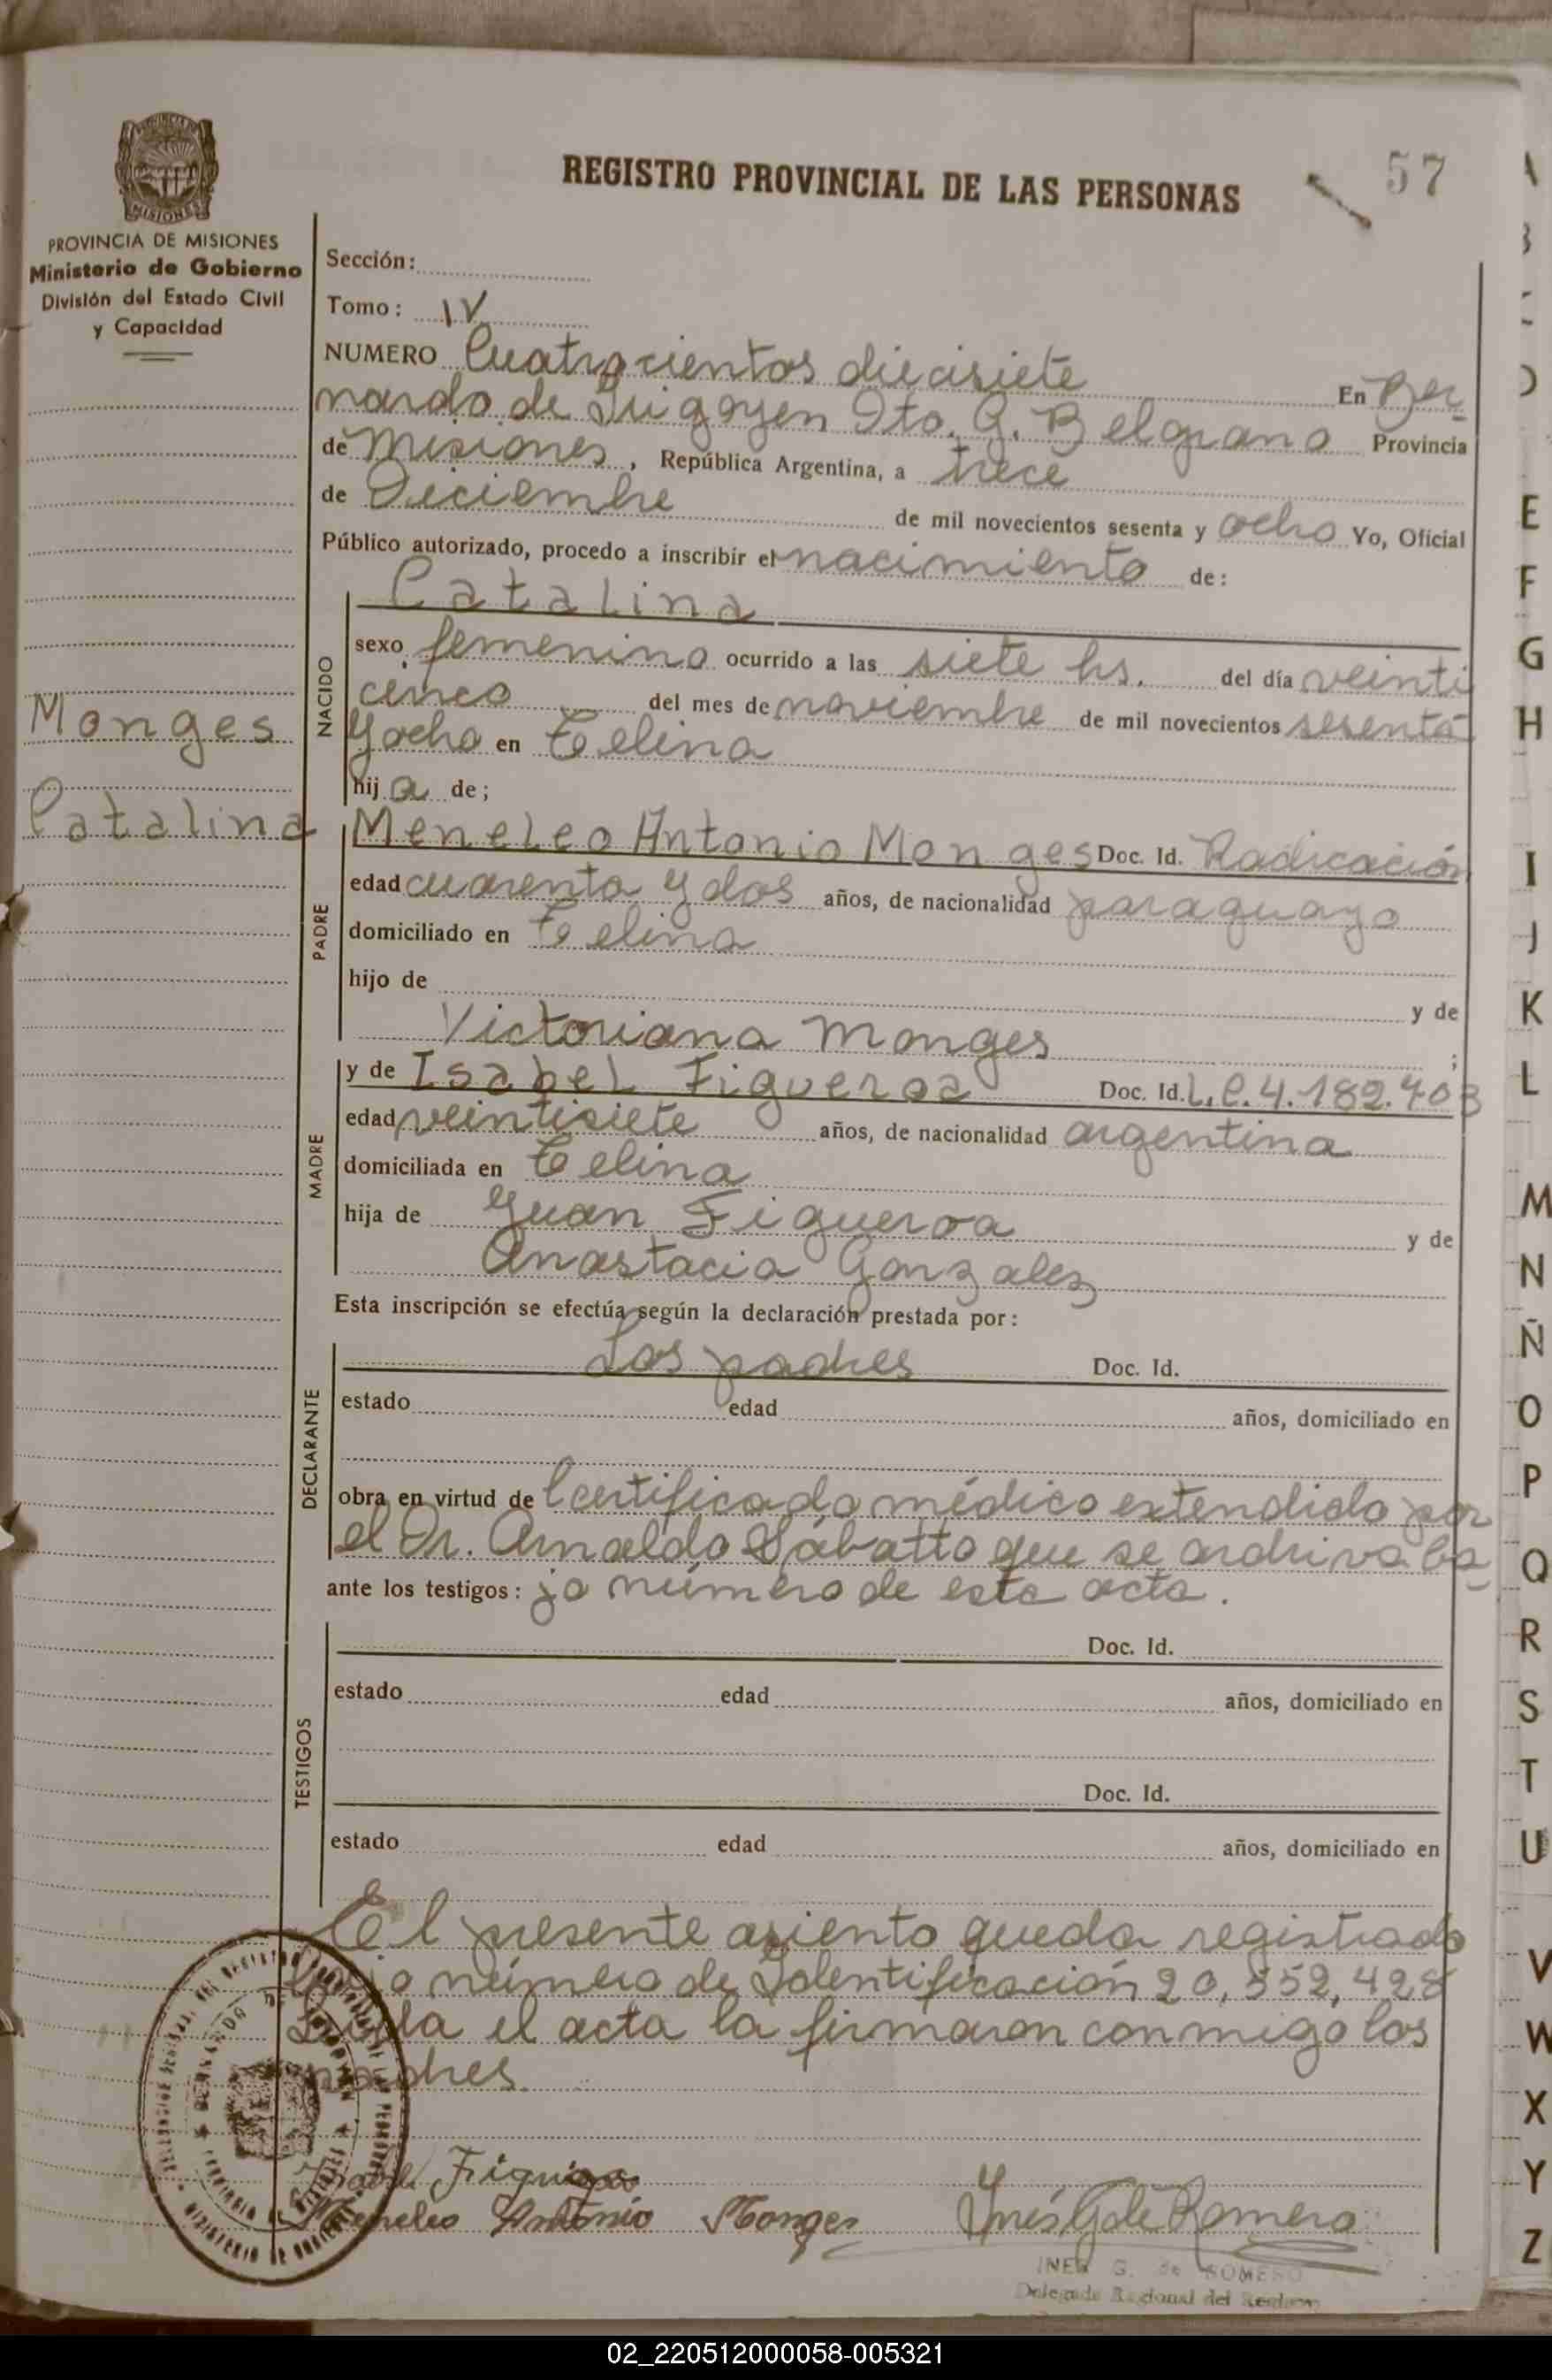 PROVINCIA DE MISIONES
Ministerio de Gobierno
División del Estado Civil
y Capacidad
Monges
Catalina
REGISTRO PROVINCIAL DE LAS PERSONAS
57
Sección:
Tomo: IV
NUMERO Cuatrocientos diecisiete En Ber-
nardo de Irigoyen Dto. G. Belgrano Provincia
de Misiones, República Argentina, a trece
de Diciembre de mil novecientos sesenta y ocho Yo, Oficial
Público autorizado, procedo a inscribir el nacimiento de:
NACIDO
Catalina
sexo femenino ocurrido a las siete hs. del día veinti
cinco del mes de noviembre de mil novecientos sesenta
y ocho en Celina
hij a de;
PADRE
Meneleo Antonio Monges Doc. Id. Radicación
edad cuarenta y dos años, de nacionalidad paraguayo
domiciliado en Celina
hijo de y de
Victoriana Monges ;
MADRE
y de Isabel Figueroa Doc. Id. L.C. 4.182.403
edad veintisiete años, de nacionalidad argentina
domiciliada en Celina
hija de Juan Figueroa y de
Anastacia Gonzalez
Esta inscripción se efectúa según la declaración prestada por:
DECLARANTE
Los padres Doc. Id.
estado edad años, domiciliado en
obra en virtud de Certificado médico extendido por
el Dr. Arnaldo Sábatto que se archiva ba-
ante los testigos: jo número de esta acta.
TESTIGOS
Doc. Id.
estado edad años, domiciliado en
Doc. Id.
estado edad años, domiciliado en
El presente asiento queda registrado
bajo número de Identificación 20,552,428
Leída el acta la firmaron conmigo los
padres.
Isabel Figueroa
Meneleo Antonio Monges Inés G de Romero
INES G. de ROMERO
Delegada Regional del
A
B
C
D
E
F
G
H
I
J
K
L
M
N
Ñ
O
P
Q
R
S
T
U
V
W
X
Y
Z
02_220512000058-005321